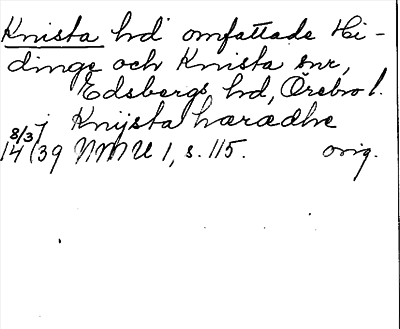 Knista hd omfattade Hi-
dinge och Knista snr,
Edsbergs hd, Örebro l.
j Knijsta haradhe
8/3
14(39 NMU 1, s. 115. orig.